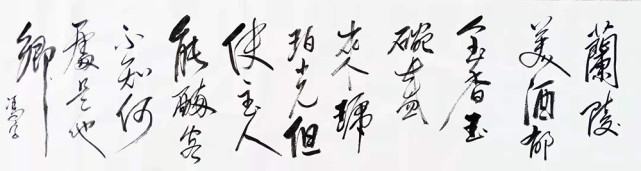 蘭陵
美酒郁
金香玉
碗盛
来琥
珀光但
使主人
能醉客
不知何
處是他
鄉